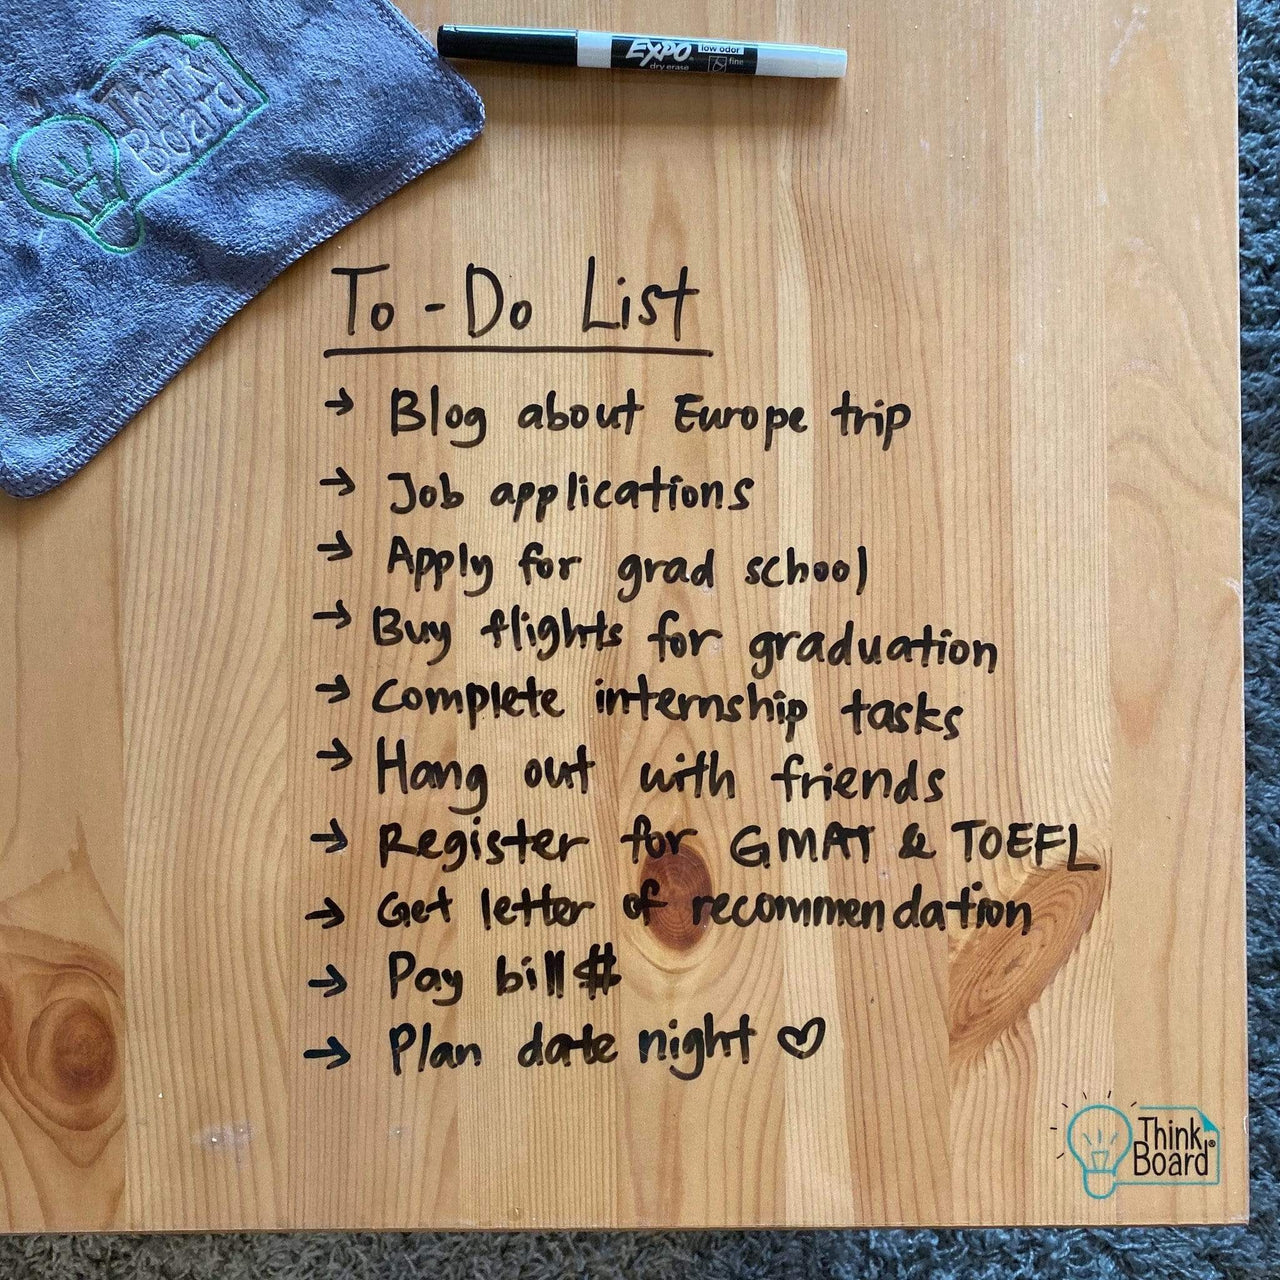 Think
Board
EXPO low odor
dry erase fine
To-Do List
→ Blog about Europe trip
→ Job applications
→ Apply for grad school
→ Buy flights for graduation
→ Complete internship tasks
→ Hang out with friends
→ Register for GMAT & TOEFL
→ Get letter of recommendation
→ Pay bill$
→ Plan date night ♡
Think
Board®